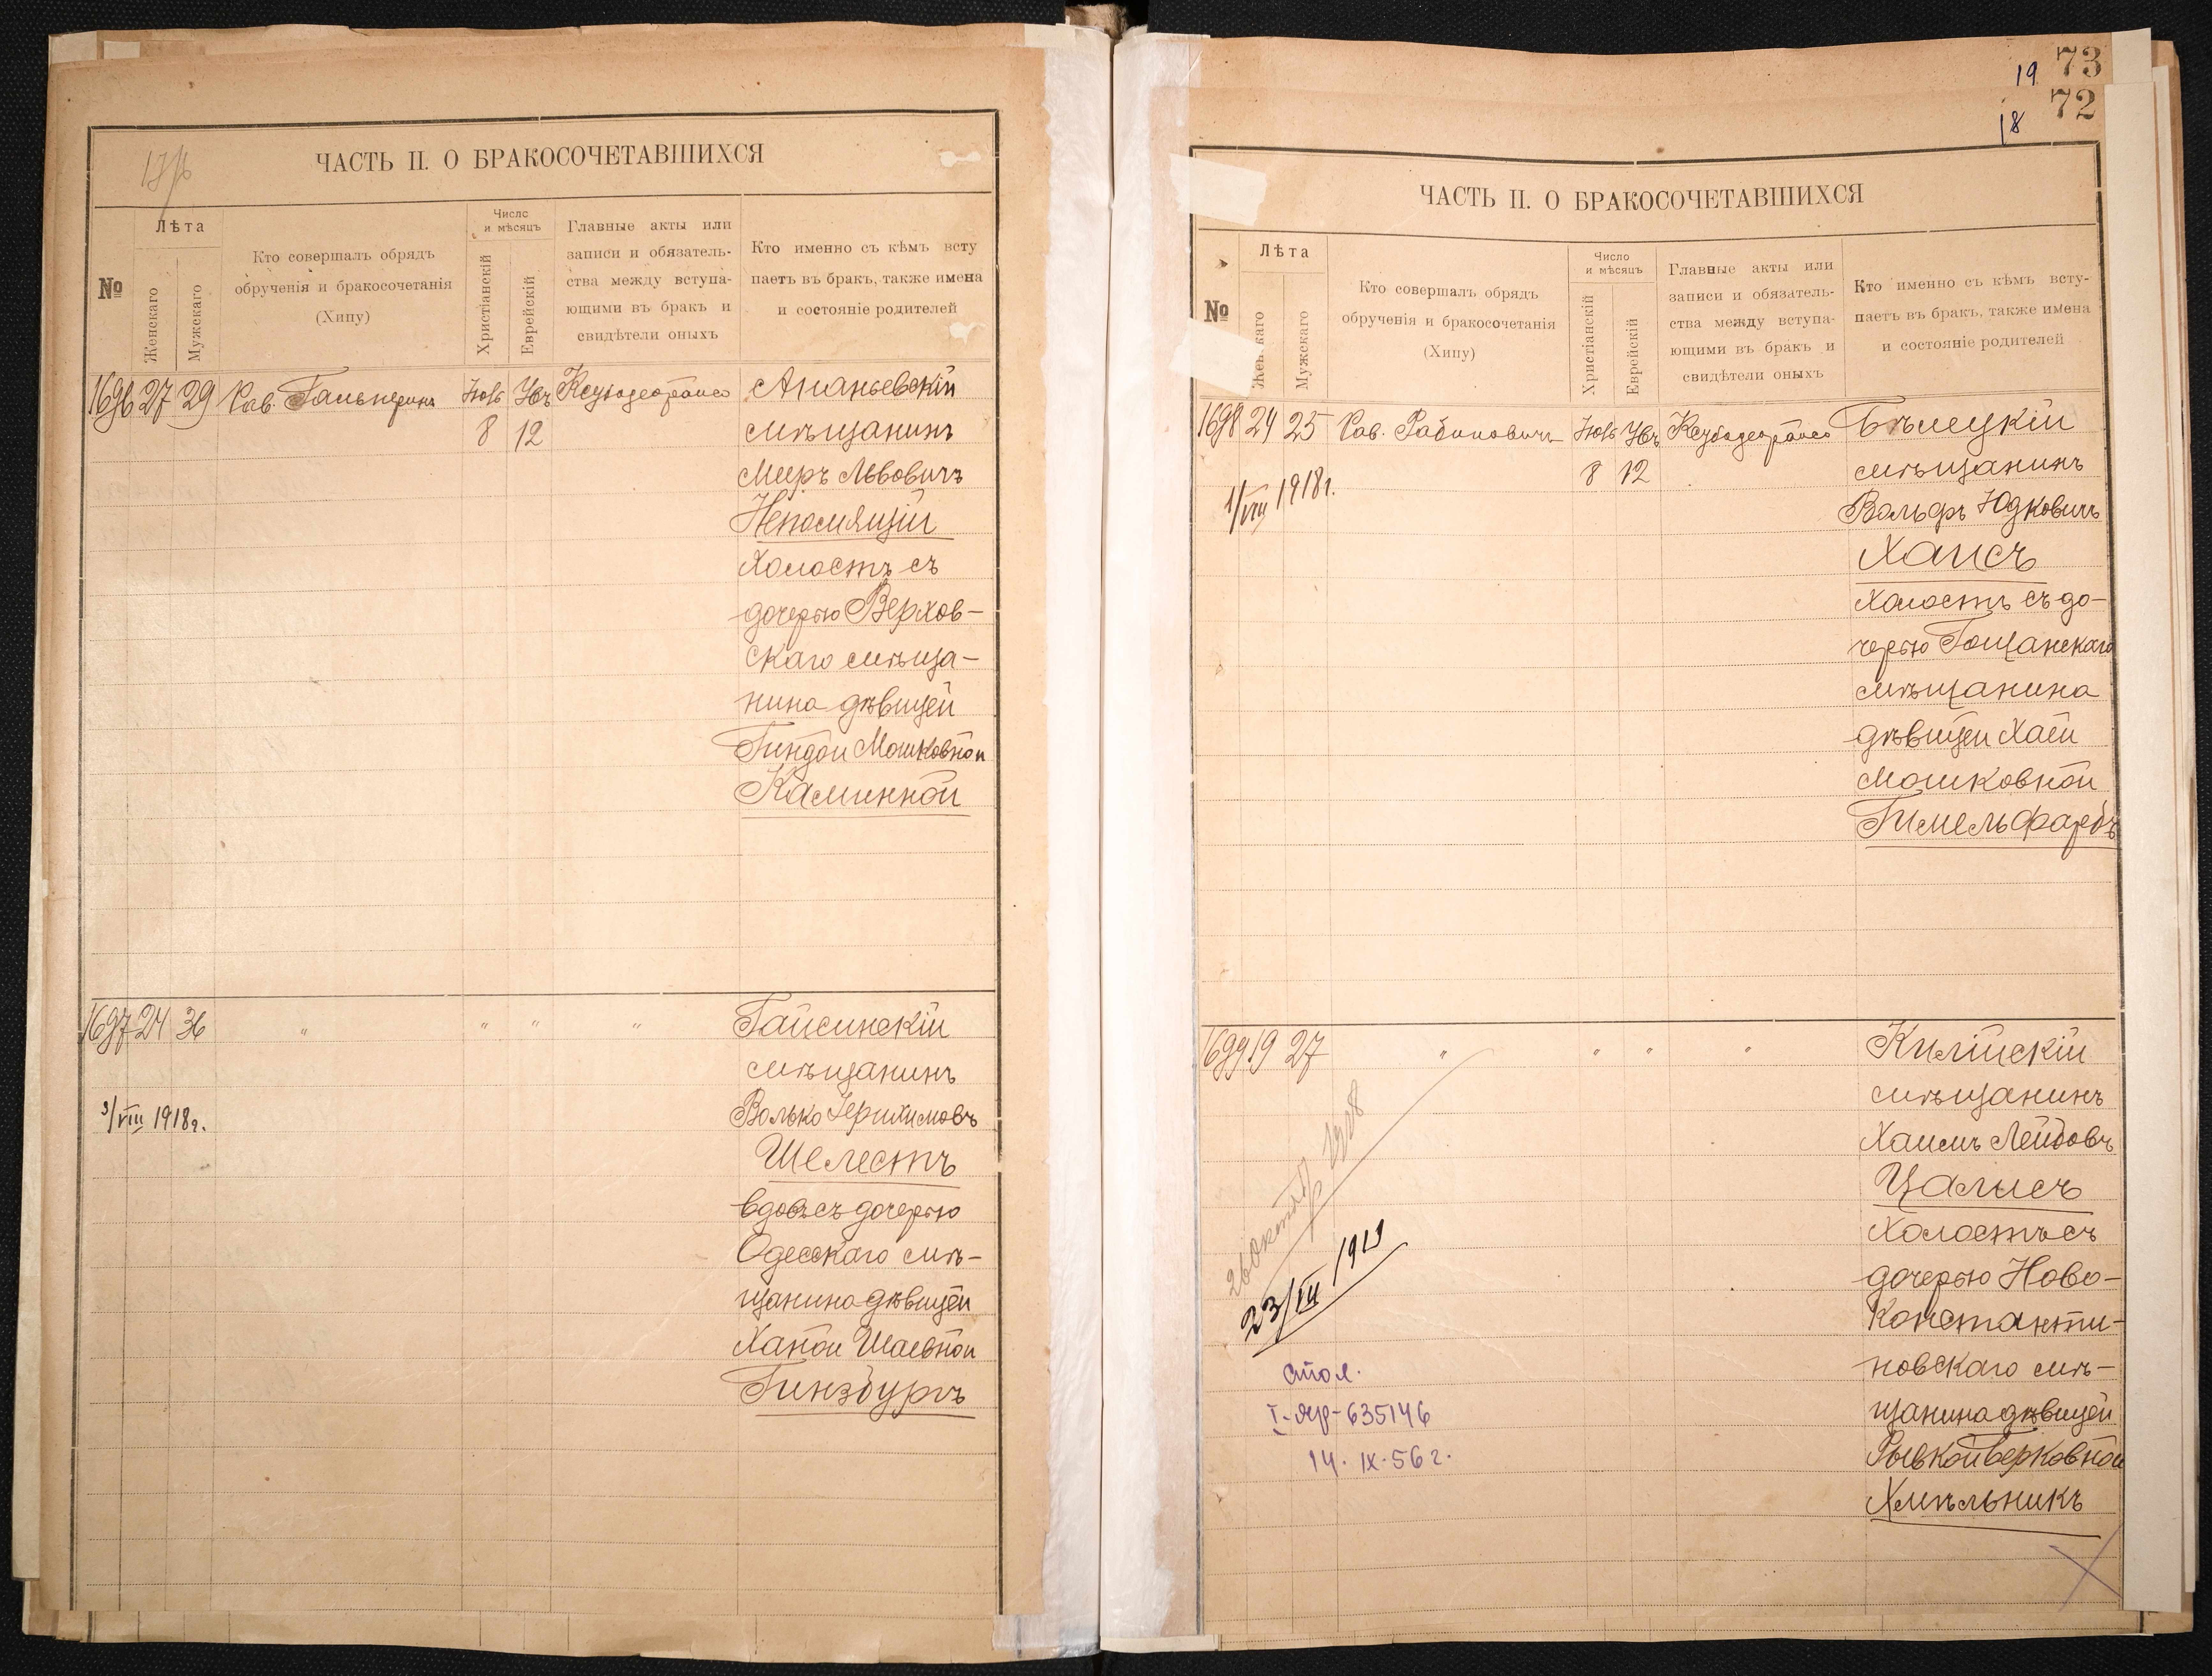 ЧАСТЬ II. О БРАКОСОЧЕТАВШИХСЯ
№
Лѣта
Женскаго
Мужскаго
Кто совершалъ обрядъ
обрученія и бракосочетанія
(Хипу)
Число
и мѣсяцъ
Христіанскій
Еврейскій
Главные акты или
записи и обязатель-
ства между вступа-
ющими въ бракъ и
свидѣтели оныхъ
Кто именно съ кѣмъ всту
паетъ въ бракъ, также имена
и состояніе родителей
1696 27 29 Рав. Гальперинъ
8 12
Ананьевскій
мѣщанинъ
Меръ Львовичъ
Непомнящій
холостъ съ
дочерью Верхов-
скаго мѣща-
нина дѣвицей
Гиндой Мошковной
Каминной
1697 24 36 " " " "
Гайсинскій
мѣщанинъ
Волько Герихимовъ
Шелестъ
вдовъ съ дочерью
Одесскаго мѣ-
щанина дѣвицей
Ханой Шаевной
Гинзбургъ
3/VIII 1918г.
19 73
18 72
ЧАСТЬ II. О БРАКОСОЧЕТАВШИХСЯ
№
Лѣта
Мужскаго
Кто совершалъ обрядъ
обрученія и бракосочетанія
(Хипу)
Число
и мѣсяцъ
Христіанскій
Еврейскій
Главные акты или
записи и обязатель-
ства между вступа-
ющими въ бракъ и
свидѣтели оныхъ
Кто именно съ кѣмъ всту-
паетъ въ бракъ, также имена
и состояніе родителей
1698 24 25 Рав. Рабиновичъ
8 12
1/VIII 1918г.
Бѣлецкій
мѣщанинъ
Вольфъ Юдковичъ
Хаисъ
холостъ съ до-
черью Гощанскаго
мѣщанина
дѣвицей Хаей
Мошковной
Гимельфарбъ
1699 19 27 " " " "
Килійскій
мѣщанинъ
Хаимъ Лейбовъ
Цалисъ
холостъ съ
дочерью Ново-
константи-
новскаго мѣ-
щанина дѣвицей
Рывкой Берковной
Хмѣльникъ
26 октяб 1908
23/III 1919
I-яр-635146
14.IX.56г.